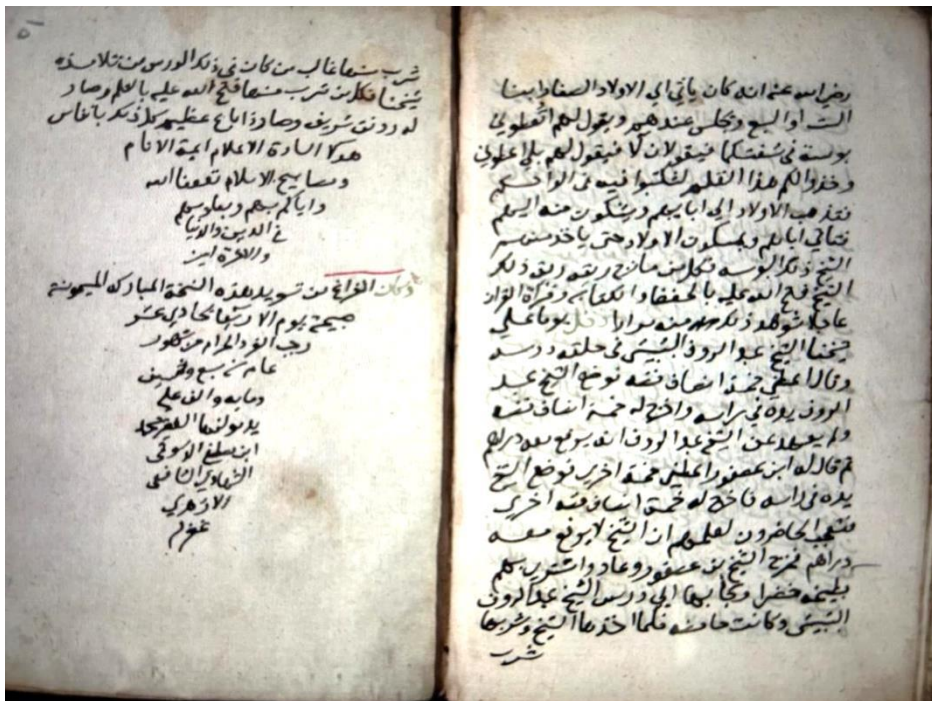 رضي الله عنه انه كان ياتي الي الاولاد الصغار ابنا
الست او السبع ويجلس عندهم ويقول لهم اتعطوني
بوسة في شفتكم فيقولان لا فيقول لهم بلي اعطوني
وخذوا لكم هذا القلم لتكتبوا فيه في الواحكم
فتذهب الاولاد الي ابايهم ويشكون منه اليهم
فتاتي اباهم ويمسكون الاولاد حتى ياخذ منهم
الشيخ ذلك البوسه فكل من مازج ريقه ريق ذلك
الشيخ فتح الله عليه بالحفظ والكتابه وقراة القران
عاجلا شوهد ذلك منه مرارا دخل يوما علي
شيخنا الشيخ عبد الروف البشبيشي في حلقه درسه
وقال اعطني خمسة انصاف فضه فوضع الشيخ عبد
الروف يده في راسه واخرج له خمسة انصاف فضه
ولم يعهد عن الشيخ عبد الروف انه يوضع معه دراهم
ثم قال له ابن عصفور اعطني خمسة اخري فوضع الشيخ
يده في راسه فاخرج له خمسة انصاف فضه اخري
فتعجب الحاضرون لعلمهم ان الشيخ لا يوضع معه
دراهم فخرج الشيخ بن عصفور وعاد واشتري بهم
بطيخه خضرا وجا بها الي درس الشيخ عبد الروف
البشبيشي وكانت حامضه فلما اخذها الشيخ وشربها
شرب
شرب منها غالب من كان في ذلك الدرس من تلامذة
شيخنا فكل من شرب منها فتح الله عليه بالعلم وصار
له رونق شريف وصار ذا باع عظيم كل ذلك بانفاس
هولا السادة الاعلام ايمة الانام
ومصابيح الاسلام نفعنا الله
واياكم بهم وبعلومهم
في الدين والدنيا
والاخرة امين
وكان الفراغ من تسويد هذه النسخة المباركه الميمونة
صبيحة يوم الاربعا حادي عشر
رجب الفرد الحرام من شهور
عام سبع وخمسين
ومايه والف علي
يد مولفها الفقير محمد
ابن مصطفى الدسوقي
الشافعي
الازهري
غفر له